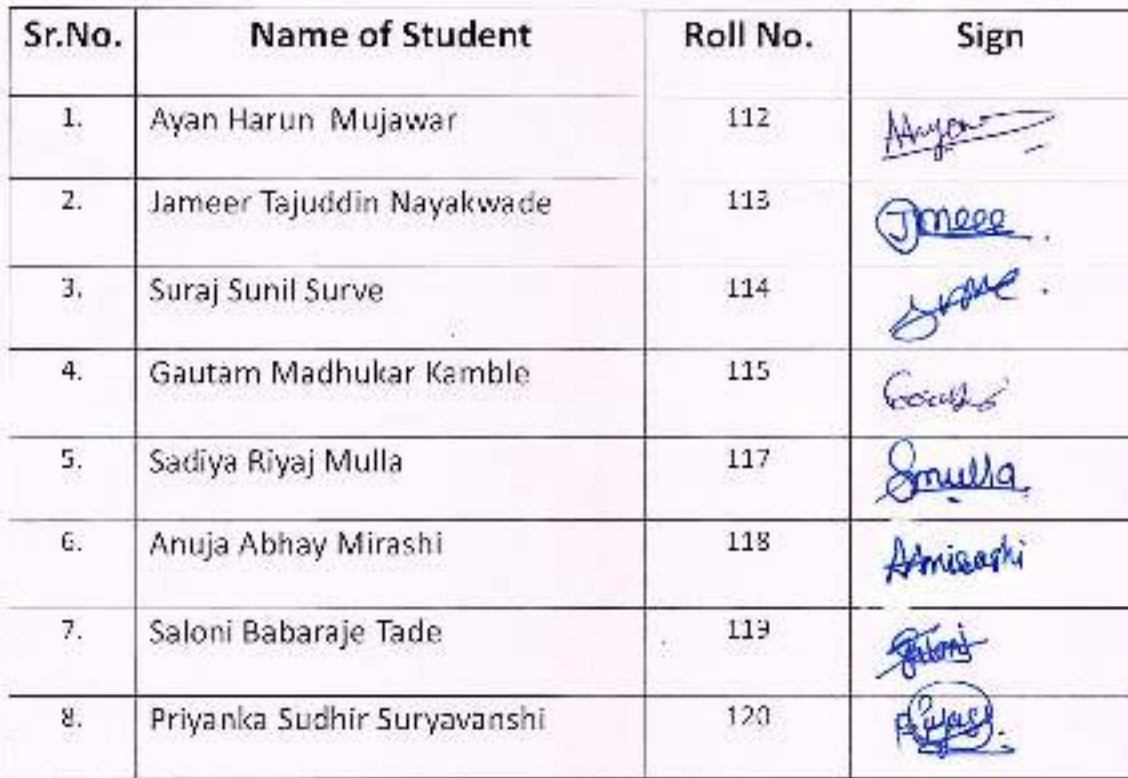 Sr.No. Name of Student Roll No. Sign
1. Ayan Harun Mujawar 112 Ayan
2. Jameer Tajuddin Nayakwade 113 Jmeee.
3. Suraj Sunil Surve 114
4. Gautam Madhukar Kamble 115
5. Sadiya Riyaj Mulla 117 Smulla
6. Anuja Abhay Mirashi 118 AAmirashi
7. Saloni Babaraje Tade 119 Saloni
8. Priyanka Sudhir Suryavanshi 120